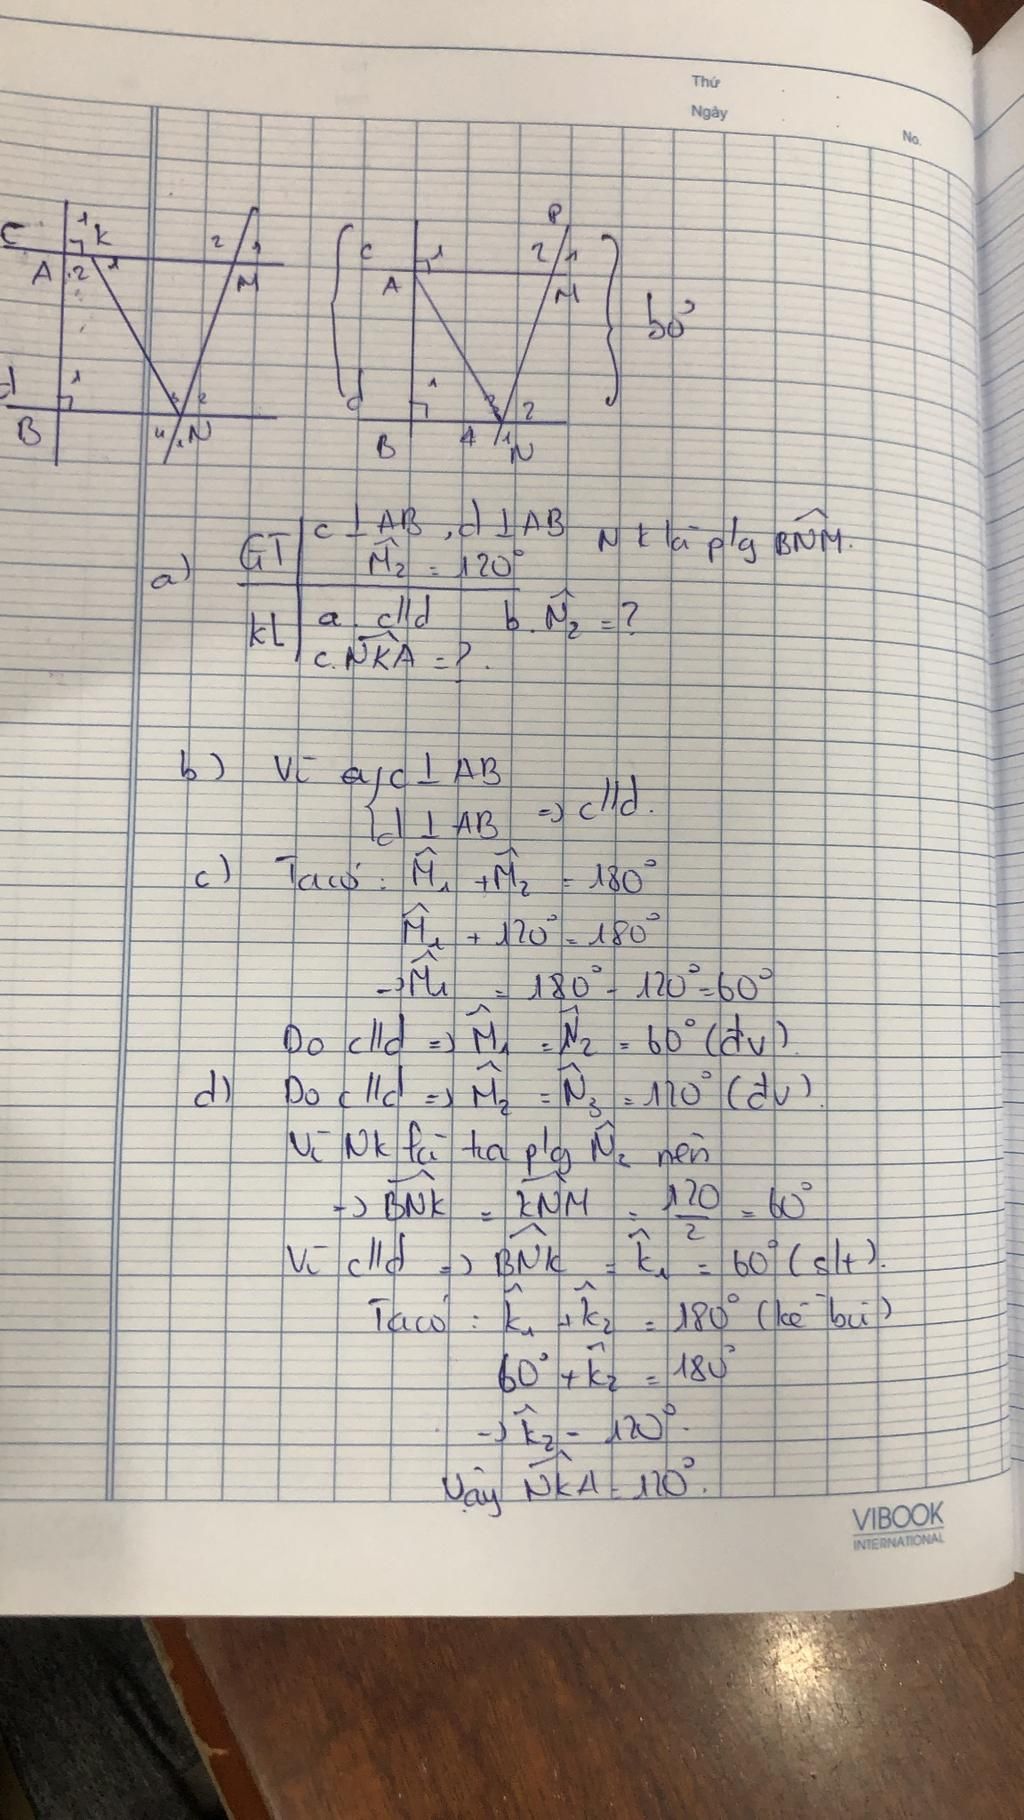 Thứ
Ngày
No.
c 1 K 2 1
A 2 1 M
d 1
B 4 1 N
P
c 1 2 1
A M
50°
d 1 3 2
B 4 1 N
GT c ⊥ AB, d ⊥ AB NK là p/g BNM̂.
a) M̂₂ = 120°
KL a. c//d b. N̂₂ = ?
c. NKÂ = ?.
b) Vì c ⊥ AB
d ⊥ AB => c//d.
c) Ta có: M̂₁ + M̂₂ = 180°
M̂₁ + 120° = 180°
→ M̂₁ = 180° - 120° = 60°
Do c//d => M̂₁ = N̂₂ = 60° (đv).
d) Do c//d => M̂₂ = N̂₃ = 120° (đv).
Vì NK là tia p/g N̂₂ nên
→ BNK̂ = KNM̂ = 120/2 = 60°
Vì c//d => BNK̂ = k̂₁ = 60° (slt).
Ta có: k̂₁ + k̂₂ = 180° (kề bù)
60° + k̂₂ = 180°
→ k̂₂ = 120°.
Vậy NKÂ = 120°.
VIBOOK
INTERNATIONAL